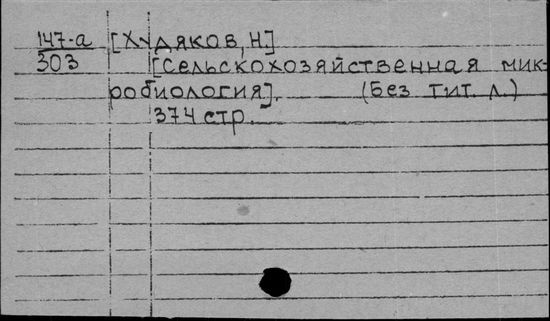 147-а [Худяков, Н.]
303 [Сельскохозяйственная мик-
робиология]. (Без тит. л.)
374 стр.